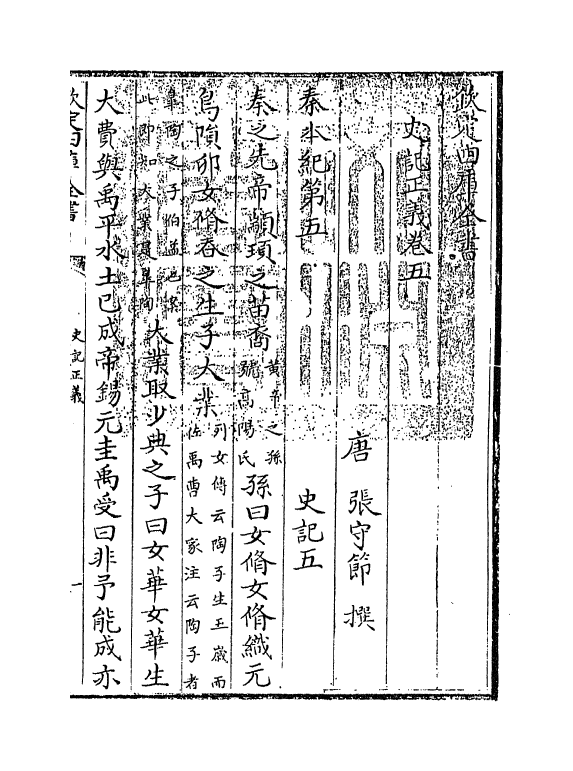 欽定四庫全書
史記正義卷五
唐 張守節 撰
秦本紀第五 史記五
秦之先帝顓頊之苗裔
黃帝之孫
號高陽氏
孫曰女脩女脩織元
鳥隕卵女脩吞之生子大業
列女傳云陶子生五歲而
佐禹曹大家注云陶子者
皋陶之子伯益也案
此即知大業是皋陶
大業取少典之子曰女華女華生
大費與禹平水土已成帝錫元圭禹受曰非予能成亦
欽定四庫全書
史記正義
一